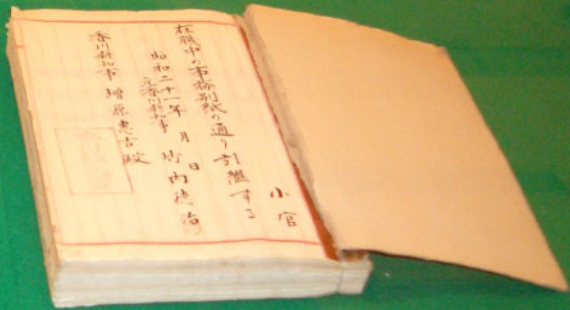 小官
在職中の事務別紙の通り引継する
昭和二十一年 月 日
元香川県知事 竹内徳治
香川県知事 増原恵吉殿